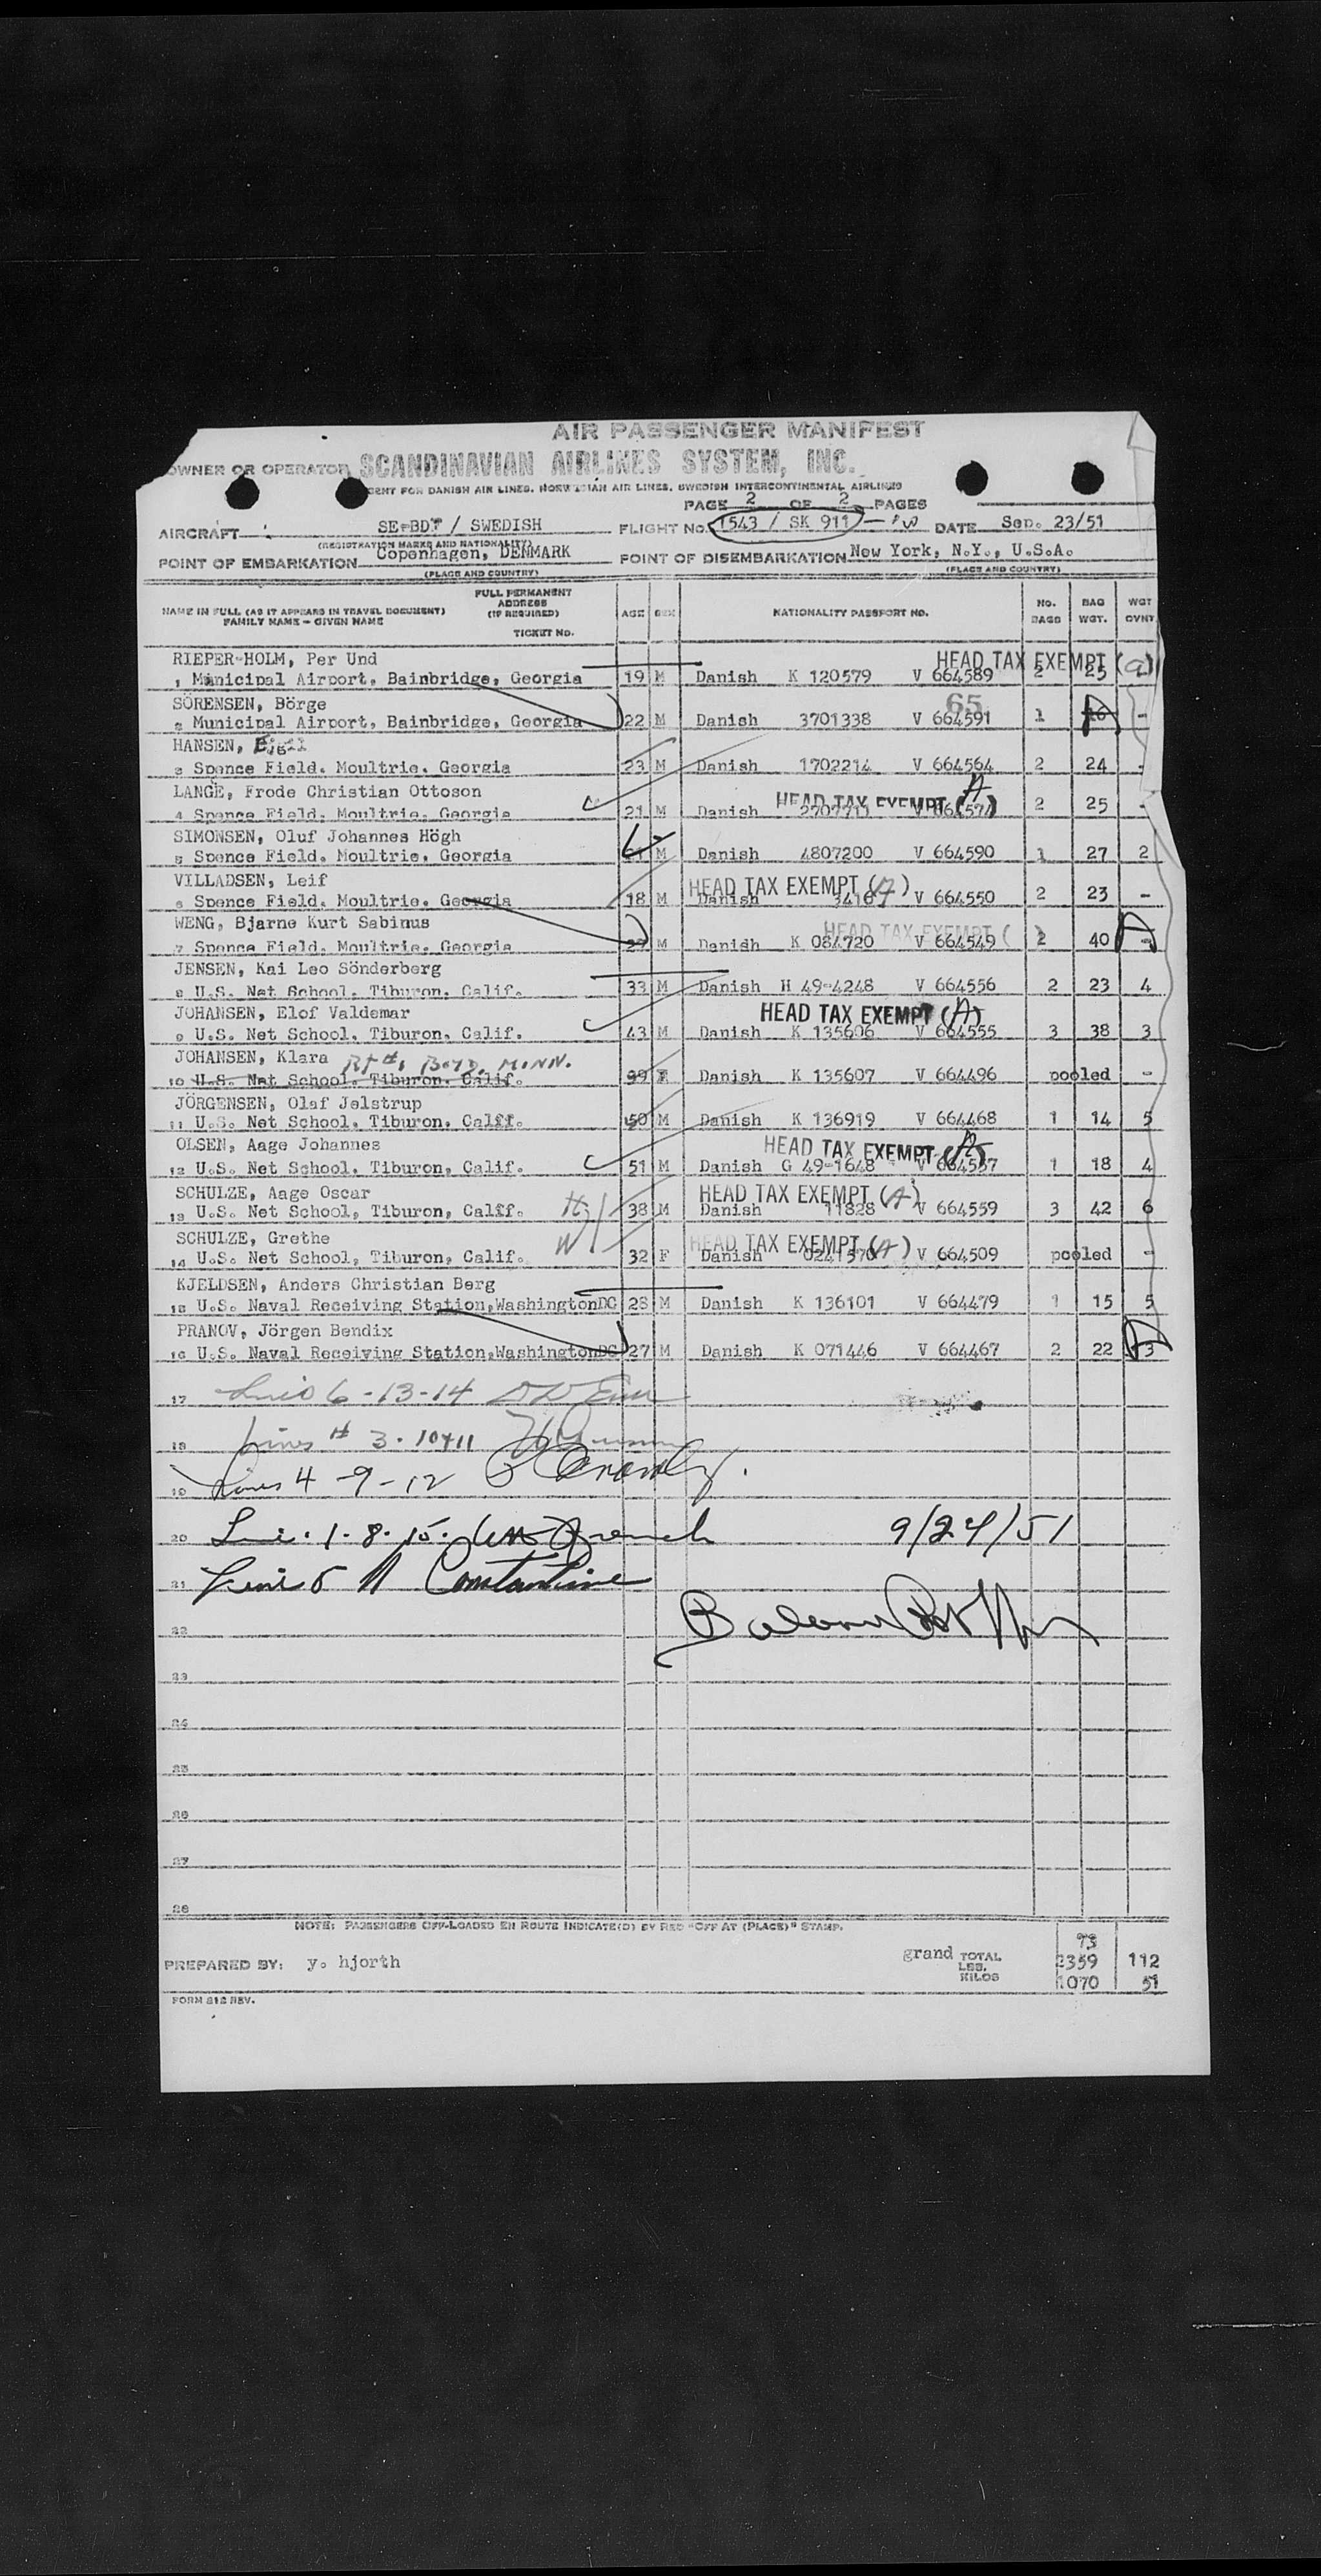 AIR PASSENGER MANIFEST
OWNER OR OPERATOR SCANDINAVIAN AIRLINES SYSTEM, INC.
AGENT FOR DANISH AIR LINES, NORWEGIAN AIR LINES, SWEDISH INTERCONTINENTAL AIRLINES
PAGE 2 OF 2 PAGES
AIRCRAFT SE-BDF / SWEDISH FLIGHT NO. 1543 / SK 911 DATE Sep. 23/51
(REGISTRATION MARKS AND NATIONALITY)
POINT OF EMBARKATION Copenhagen, DENMARK POINT OF DISEMBARKATION New York, N.Y., U.S.A.
(PLACE AND COUNTRY) (PLACE AND COUNTRY)
NAME IN FULL (AS IT APPEARS IN TRAVEL DOCUMENT) FAMILY NAME - GIVEN NAME FULL PERMANENT ADDRESS (IF REQUIRED) TICKET NO. AGE SEX NATIONALITY PASSPORT NO. NO. BAGS BAG WGT. WGT OVNT
RIEPER-HOLM, Per Und HEAD TAX EXEMPT (a)
1 Municipal Airport, Bainbridge, Georgia 19 M Danish K 120579 V 664589 2 25
SÖRENSEN, Börge 65
2 Municipal Airport, Bainbridge, Georgia 22 M Danish 3701338 V 664591 1 -
HANSEN, Ejgil
3 Spence Field, Moultrie, Georgia 23 M Danish 1702214 V 664564 2 24 -
LANGE, Frode Christian Ottoson HEAD TAX EXEMPT (A)
4 Spence Field, Moultrie, Georgia 21 M Danish 2 25 -
SIMONSEN, Oluf Johannes Högh
5 Spence Field, Moultrie, Georgia M Danish 4807200 V 664590 1 27 2
VILLADSEN, Leif HEAD TAX EXEMPT (A)
6 Spence Field, Moultrie, Georgia 18 M Danish V 664550 2 23 -
WENG, Bjarne Kurt Sabinus HEAD TAX EXEMPT ( )
7 Spence Field, Moultrie, Georgia M Danish K 084720 V 664549 2 40 A
JENSEN, Kai Leo Sönderberg
8 U.S. Net School, Tiburon, Calif. 33 M Danish H 49-4248 V 664556 2 23 4
JOHANSEN, Elof Valdemar HEAD TAX EXEMPT (A)
9 U.S. Net School, Tiburon, Calif. 43 M Danish K 135606 V 664555 3 38 3
JOHANSEN, Klara Rt #1 BOYD, MINN.
10 U.S. Net School, Tiburon, Calif. 39 F Danish K 135607 V 664496 pooled -
JÖRGENSEN, Olaf Jelstrup
11 U.S. Net School, Tiburon, Calif. 50 M Danish K 136919 V 664468 1 14 5
OLSEN, Aage Johannes HEAD TAX EXEMPT (A)
12 U.S. Net School, Tiburon, Calif. 51 M Danish G 49-1648 V 664557 1 18 4
SCHULZE, Aage Oscar H HEAD TAX EXEMPT (A)
13 U.S. Net School, Tiburon, Calif. 38 M Danish 11828 V 664559 3 42 6
SCHULZE, Grethe W HEAD TAX EXEMPT (A)
14 U.S. Net School, Tiburon, Calif. 32 F Danish 0241570 V 664509 pooled -
KJELDSEN, Anders Christian Berg
15 U.S. Naval Receiving Station,WashingtonDC 28 M Danish K 136101 V 664479 1 15 5
PRANOV, Jörgen Bendix
16 U.S. Naval Receiving Station,WashingtonDC 27 M Danish K 071446 V 664467 2 22 3
17 6-13-14
18 Lines # 3-10+11
19 Lines 4-9-12
20 Line. 1.8.15. French 9/24/51
21 Line 5 N Constantine
22
23
24
25
26
27
28
NOTE: PASSENGERS OFF-LOADED EN ROUTE INDICATE(D) BY RED "OFF AT (PLACE)" STAMP.
73
PREPARED BY: y. hjorth grand TOTAL LBS. 2359 112
KILOS 1070 51
FORM 812 REV.